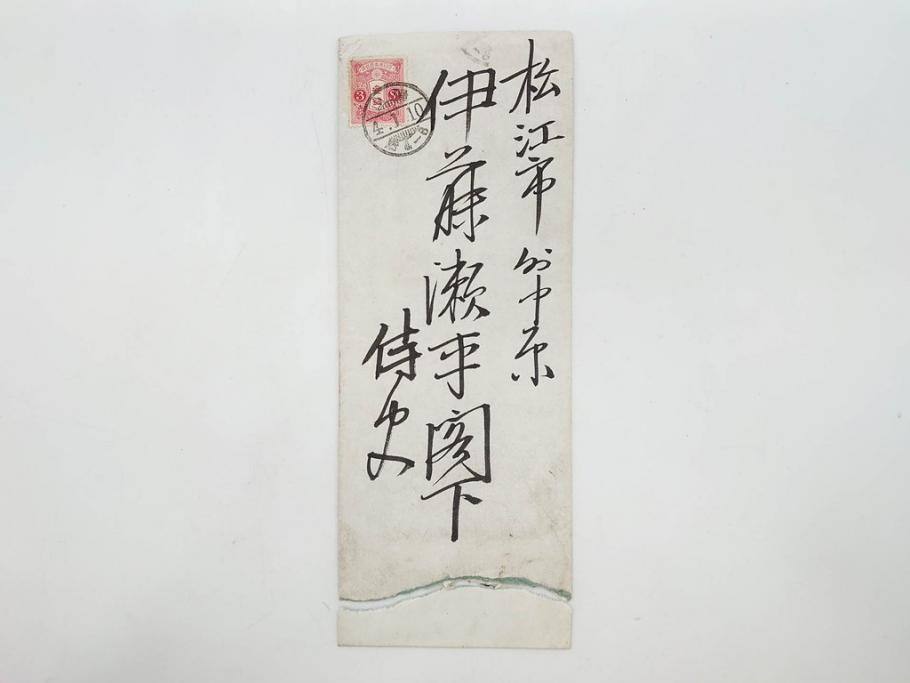 松江市外中原
伊藤瀬平閣下
侍史
3
4.1.10